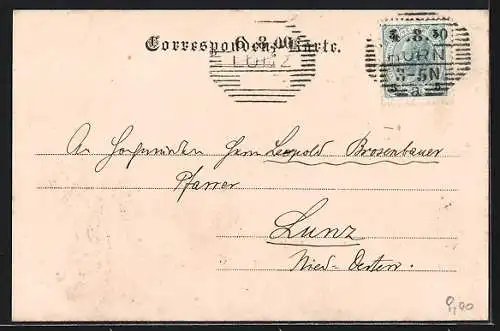 Correspondenz-Karte.
6.8.00
LUNZ
5 .8. 00
HORN
3-5N
5 a 5
An Hochwürden Herrn Leopold Brosenbauer
Pfarrer
Lunz
Nied-Oesterr.